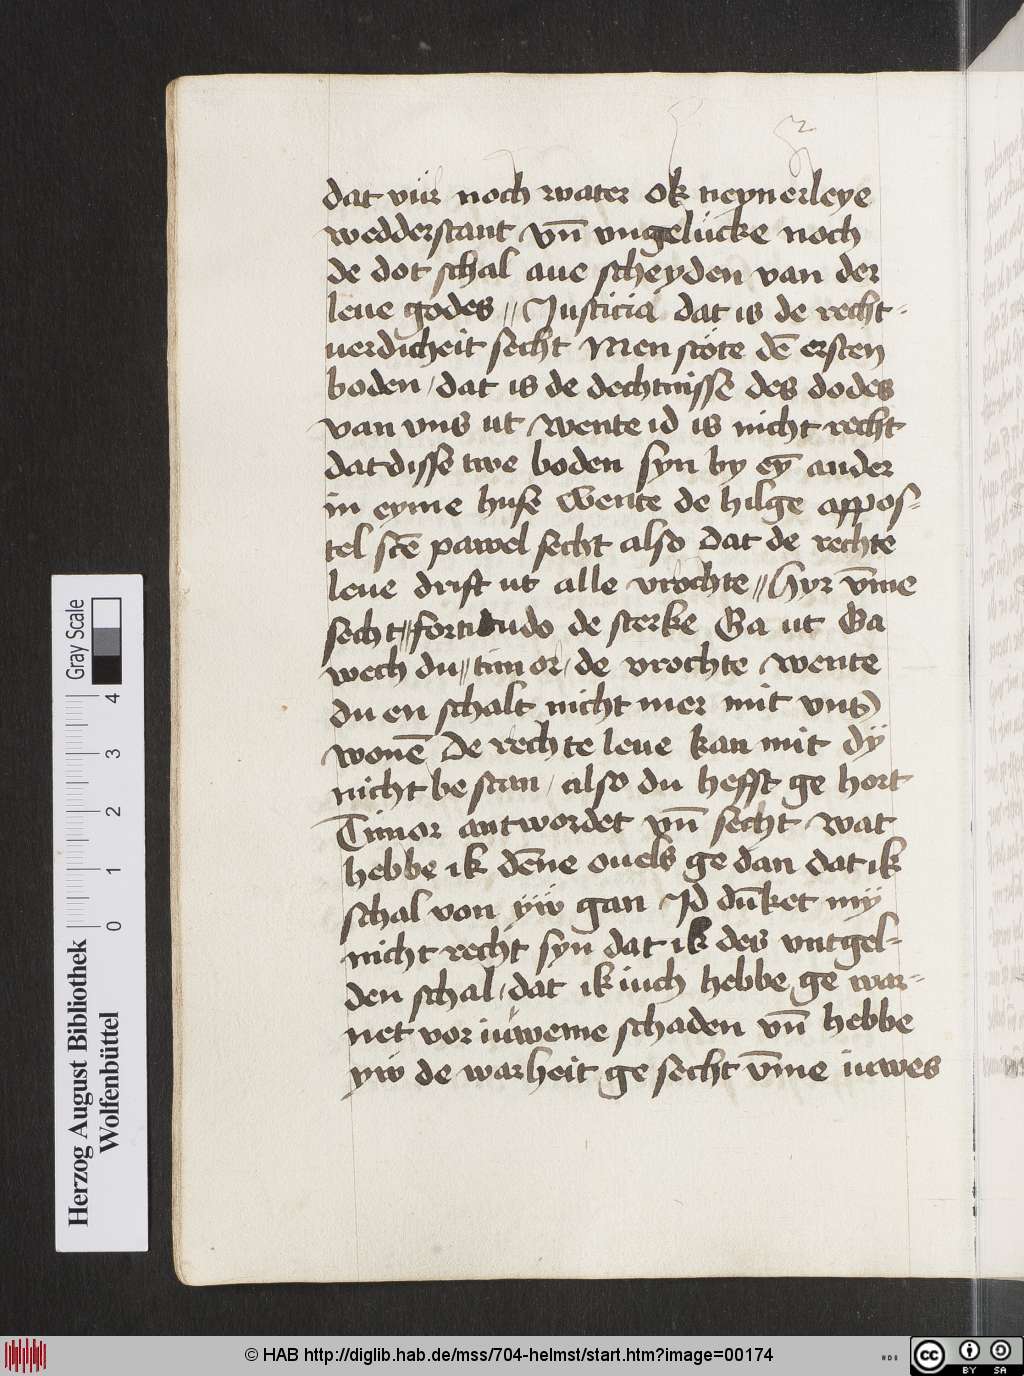 dat vür noch water ok neynerleye
wedderstant vn̄ vngelücke noch
de dot schal aue scheyden van der
leue godes // Justicia dat is de recht-
uerdicheit secht Men stöte dē ersten
boden / dat is de dechtnisse des dodes
van vns ut wente id is nicht recht
dat disse twe boden syn by eȳ ander
in eyme huse Wente de hilge appos-
tel sc̄e pawel secht also dat de rechte
leue drift ut alle vrochte // Hyr v̄me
secht // fortitudo de sterke Ga ut Ga
wech du // timor / de vrochte wente
du en schalt nicht mer mit vns
wonē De rechte leue kan mit dÿ
nicht be stan / also du hefft ge hort
Timor antwordet vn̄ secht wat
hebbe ik dēne ouels ge dan dat ik
schal von ÿw gan Id dūket mÿ
nicht recht syn dat ik des vntgel-
den schal / dat ik iuch hebbe ge war-
net vor iüweme schaden vn̄ hebbe
yw de warheit ge secht v̄me iuwes
Gray Scale
4 3 2 1 0
Herzog August Bibliothek
Wolfenbüttel
© HAB http://diglib.hab.de/mss/704-helmst/start.htm?image=00174
HDB
cc BY SA